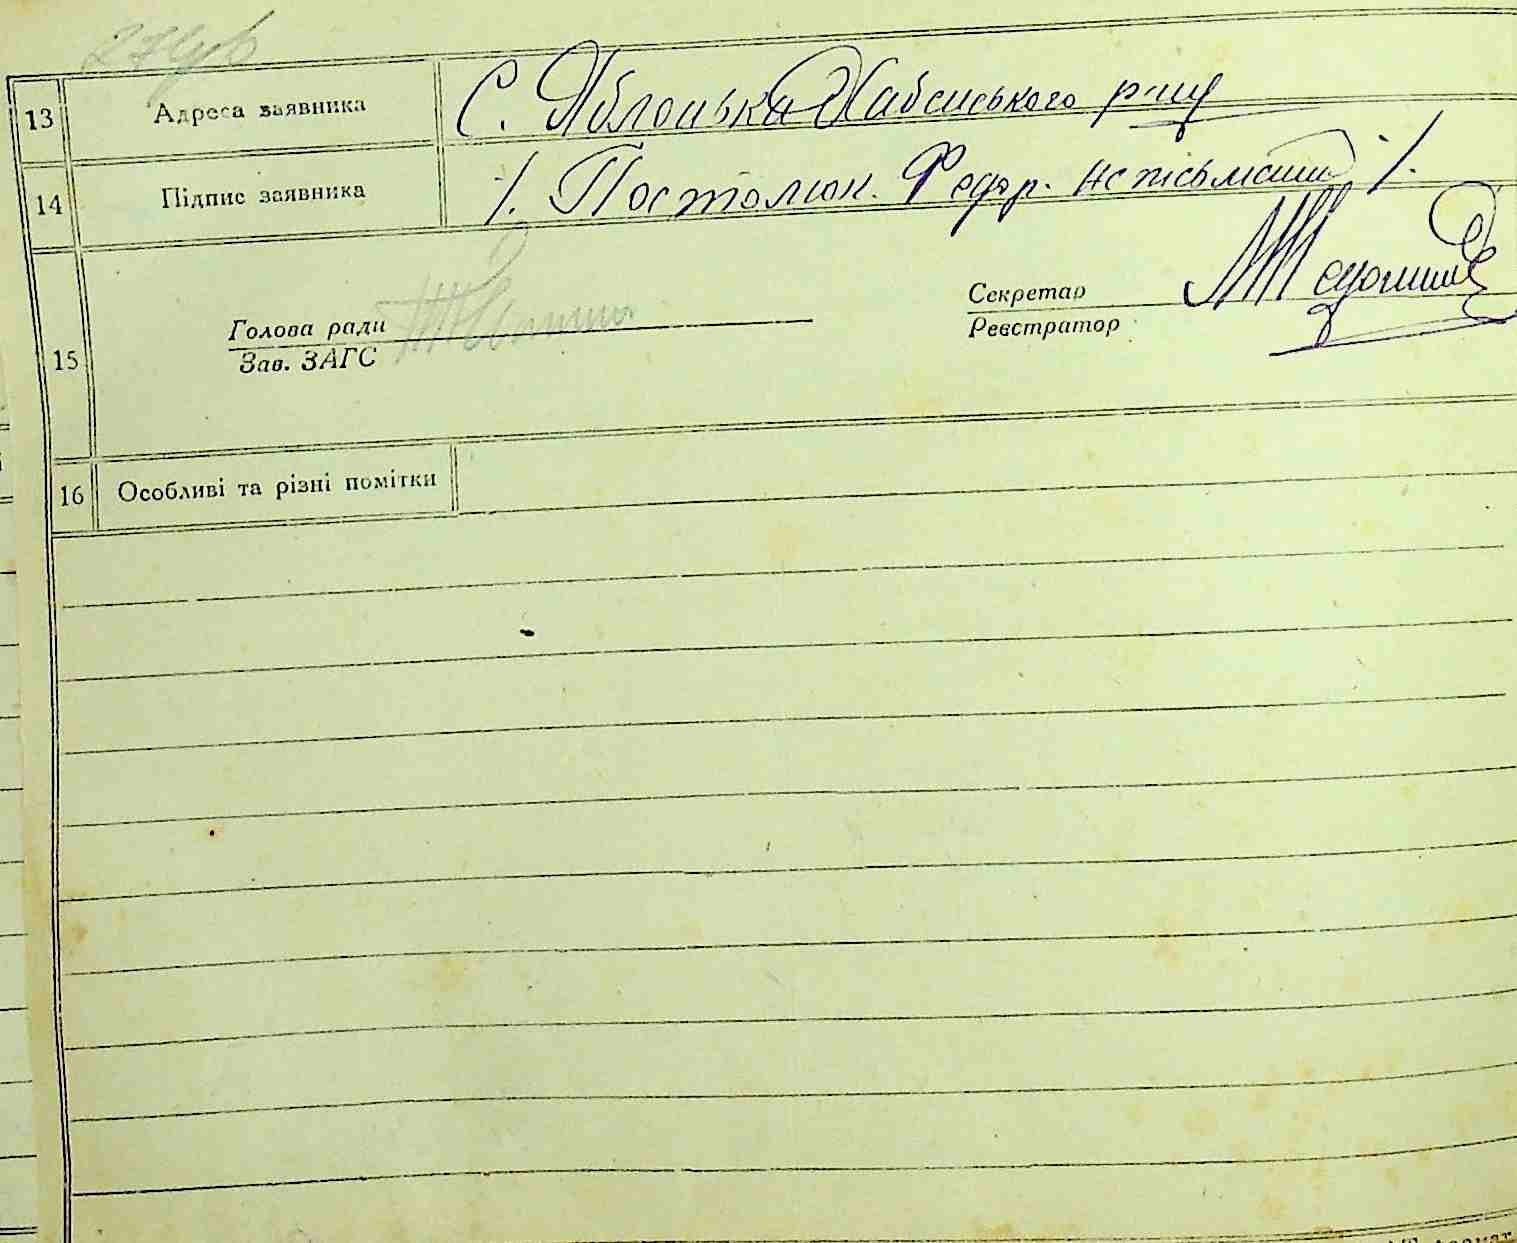 13 Адреса заявника С. Яблонька Хабенського р-ну
14 Підпис заявника /. Постолюк. Федор. не письмений /.
15
Голова ради
Зав. ЗАГС
Секретар
Реєстратор
16 Особливі та різні помітки